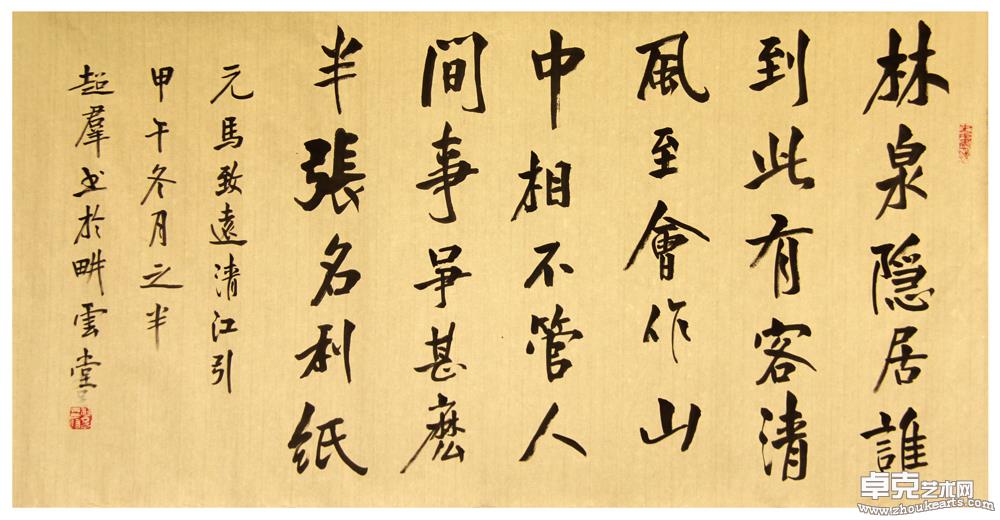 林泉隐居誰
到此有客清
風至會作山
中相不管人
間事爭甚麽
半張名利纸
元馬致遠清江引
甲午冬月之半
超羣书於畊雲堂
卓克艺术网
www.zhoukearts.com